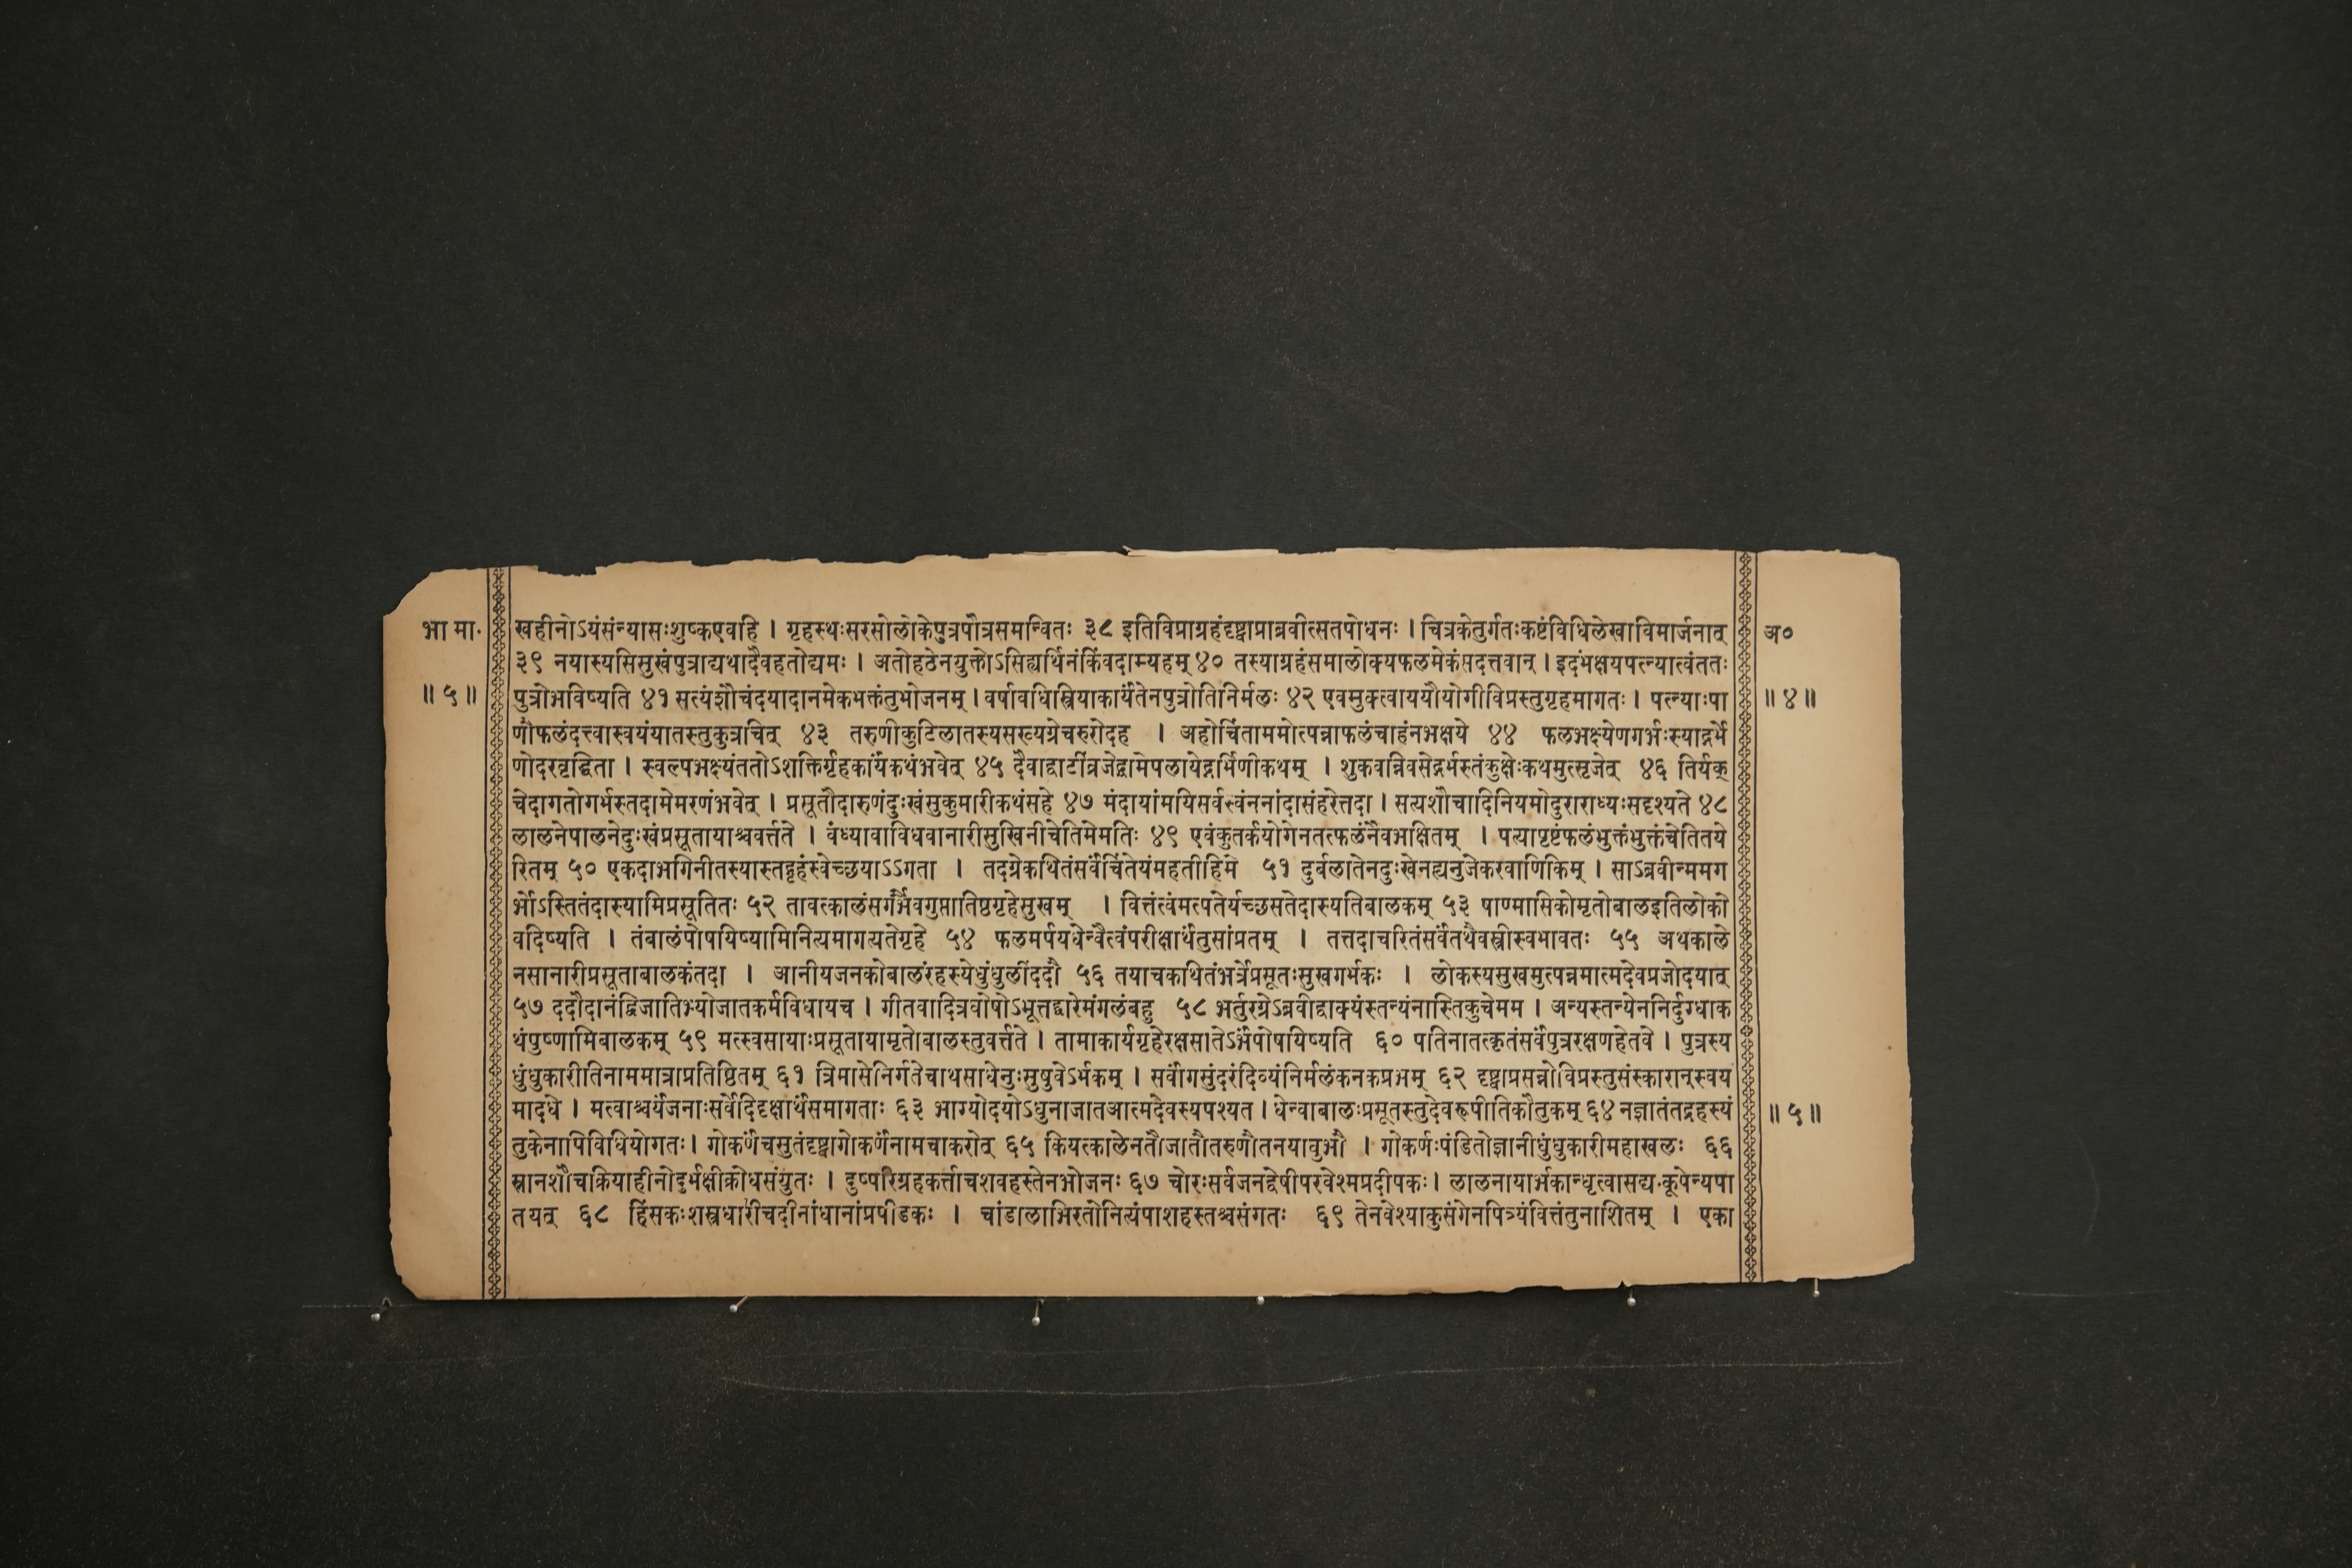 भा मा॰
॥ ५ ॥
खहीनोऽयंसंन्यासःशुष्कएवहि । गृहस्थःसरसोलोकेपुत्रपौत्रसमन्वितः ३८ इतिविप्राग्रहंदृष्ट्वाप्राब्रवीत्सतपोधनः । चित्रकेतुर्गतःकष्टंविधिलेखाविमार्जनात्
३९ नयास्यसिसुखंपुत्राद्यथादैवहतोद्यमः । अतोहठेनयुक्तोऽसिह्यर्थिनंकिंवदाम्यहम् ४० तस्याग्रहंसमालोक्यफलमेकंसदत्तवान् । इदंभक्षयपत्न्यात्वंततः
पुत्रोभविष्यति ४१ सत्यंशौचंदयादानमेकभक्तंतुभोजनम् । वर्षावधिस्त्रियाकार्यंतेनपुत्रोतिनिर्मलः ४२ एवमुक्त्वाययौयोगीविप्रस्तुगृहमागतः । पत्न्याःपा
णौफलंदत्त्वास्वयंयातस्तुकुत्रचित् ४३ तरुणीकुटिलातस्यसख्यग्रेचरुरोदह । अहोचिंताममोत्पन्नाफलंचाहंनभक्षये ४४ फलभक्ष्येणगर्भःस्याद्गर्भे
णोदरवृद्धिता । स्वल्पभक्ष्यंततोऽशक्तिर्गृहकार्यंकथंभवेत् ४५ दैवाद्धाटींव्रजेद्ग्रामेपलायेद्गर्भिणीकथम् । शुकवन्निवसेद्गर्भस्तंकुक्षेःकथमुत्सृजेत् ४६ तिर्यक्
चेदागतोगर्भस्तदामेमरणंभवेत् । प्रसूतौदारुणंदुःखंसुकुमारीकथंसहे ४७ मंदायांमयिसर्वस्वंननांदासंहरेत्तदा । सत्यशौचादिनियमोदुराराध्यःसदृश्यते ४८
लालनेपालनेदुःखंप्रसूतायाश्चवर्त्तते । वंध्यावाविधवानारीसुखिनीचेतिमेमतिः ४९ एवंकुतर्कयोगेनतत्फलंनैवभक्षितम् । पत्यापृष्टंफलंभुक्तंभुक्तंचेतितये
रितम् ५० एकदाभगिनीतस्यास्तद्गृहंस्वेच्छयाऽऽगता । तदग्रेकथितंसर्वंचिंतेयंमहतीहिमे ५१ दुर्बलातेनदुःखेनह्यनुजेकरवाणिकिम् । साऽब्रवीन्ममग
र्भोऽस्तितंदास्यामिप्रसूतितः ५२ तावत्कालंसगर्भेवगुप्तातिष्ठगृहेसुखम् । वित्तंत्वंमत्पतेर्यच्छसतेदास्यतिबालकम् ५३ षाण्मासिकोमृतोबालइतिलोको
वदिष्यति । तंबालंपोषयिष्यामिनित्यमागत्यतेगृहे ५४ फलमर्पयधेन्वैत्वंपरीक्षार्थंतुसांप्रतम् । तत्तदाचरितंसर्वंतथैवस्त्रीस्वभावतः ५५ अथकाले
नसानारीप्रसूताबालकंतदा । आनीयजनकोबालंरहस्येधुंधुलींददौ ५६ तयाचकथितंभर्त्रेप्रसूतःसुखगर्भकः । लोकस्यसुखमुत्पन्नमात्मदेवप्रजोदयात्
५७ ददौदानंद्विजातिभ्योजातकर्मविधायच । गीतवादित्रघोषोऽभूत्तद्वारेमंगलंबहु ५८ भर्तुरग्रेऽब्रवीद्वाक्यंस्तन्यंनास्तिकुचेमम । अन्यस्तन्येननिर्दुग्धाक
थंपुष्णामिबालकम् ५९ मत्स्वसायाःप्रसूतायामृतोबालस्तुवर्त्तते । तामाकार्यगृहेरक्षसातेऽर्भंपोषयिष्यति ६० पतिनातत्कृतंसर्वंपुत्ररक्षणहेतवे । पुत्रस्य
धुंधुकारीतिनाममात्राप्रतिष्ठितम् ६१ त्रिमासेनिर्गतेचाथसाधेनुःसुषुवेऽर्भकम् । सर्वांगसुंदरंदिव्यंनिर्मलंकनकप्रभम् ६२ दृष्ट्वाप्रसन्नोविप्रस्तुसंस्कारान्स्वय
मादधे । मत्वाश्चर्यंजनाःसर्वेदिदृक्षार्थंसमागताः ६३ भाग्योदयोऽधुनाजातआत्मदेवस्यपश्यत । धेन्वाबालःप्रसूतस्तुदेवरूपीतिकौतुकम् ६४ नज्ञातंतद्रहस्यं
तुकेनापिविधियोगतः । गोकर्णंचसुतंदृष्ट्वागोकर्णंनामचाकरोत् ६५ कियत्कालेनतौजातौतरुणौतनयावुभौ । गोकर्णःपंडितोज्ञानीधुंधुकारीमहाखलः ६६
स्नानशौचक्रियाहीनोदुर्भक्षीक्रोधसंयुतः । दुष्परिग्रहकर्त्ताचशवहस्तेनभोजनः ६७ चोरःसर्वजनद्वेषीपरवेश्मप्रदीपकः । लालनायार्भकान्धृत्वासद्यःकूपेन्यपा
तयत् ६८ हिंसकःशस्त्रधारीचदीनांधानांप्रपीडकः । चांडालाभिरतोनित्यंपाशहस्तश्चसंगतः ६९ तेनवेश्याकुसंगेनपित्र्यंवित्तंतुनाशितम् । एका
अ॰
॥ ४ ॥
॥ ५ ॥